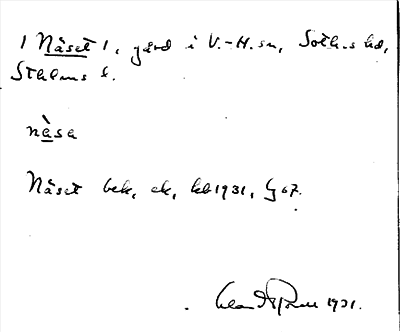 1 Näset 1, gård i V.-H. sn, Soth.s hd,
Sthlms l.
nä̀sa
Näset bek, ek, kb 1931, G 67.
1931.